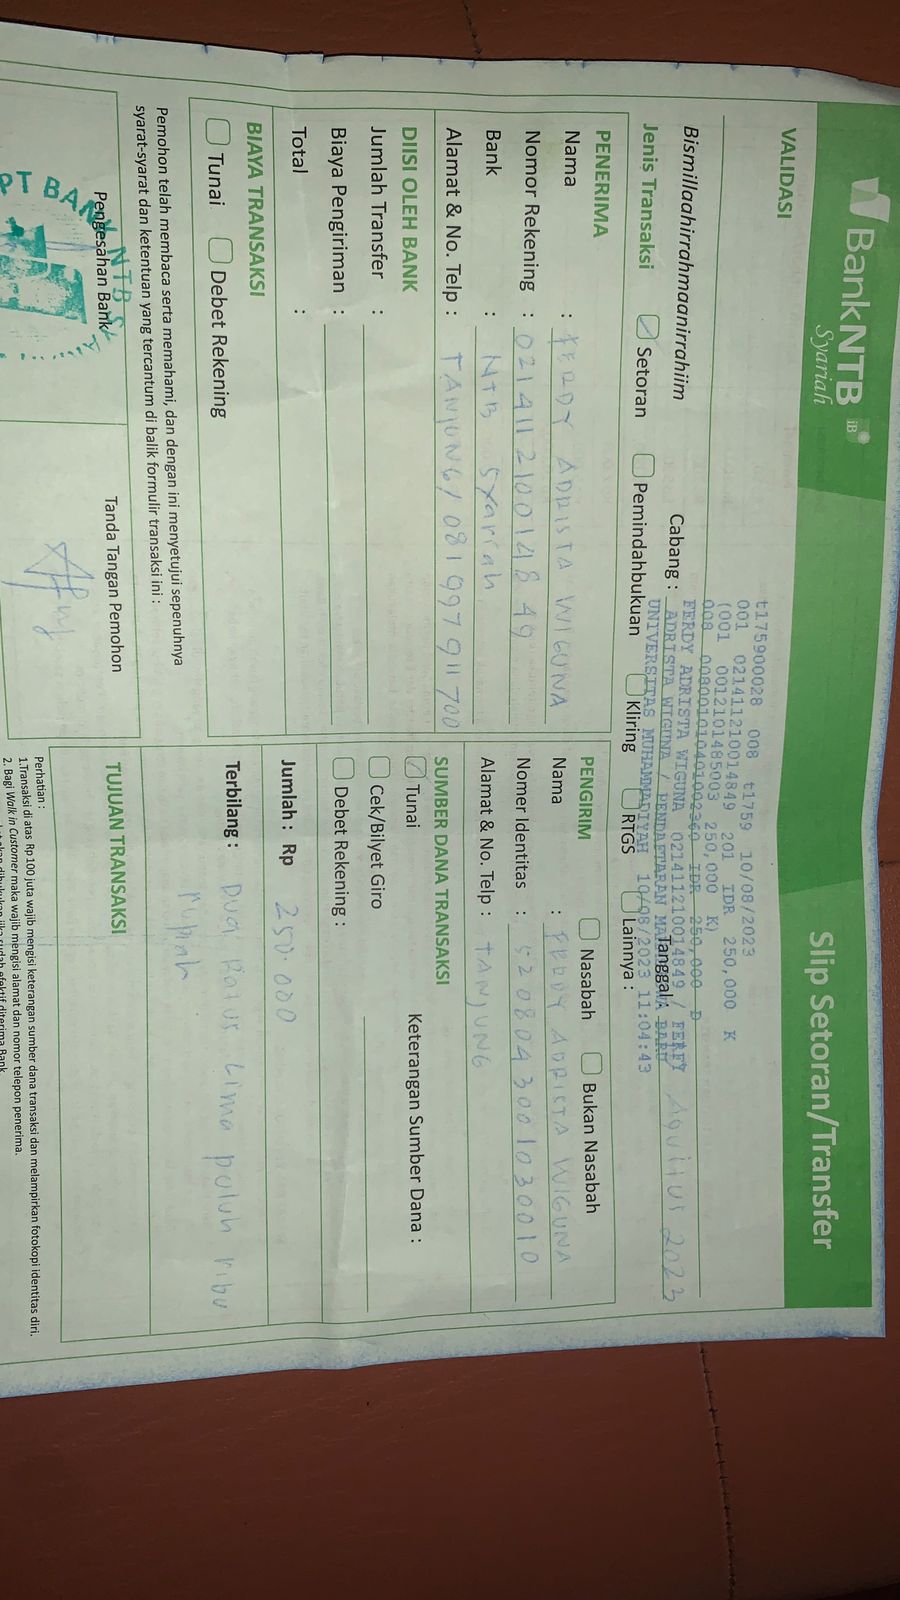 BankNTB iB
Syariah
Slip Setoran/Transfer
VALIDASI
t175900028 008 t1759 10/08/2023
001 02141121001484 9 201 IDR 250,000 K
(001 0012101485003 250,000 K)
008 008001010401002360 IDR 250,000 D
FERDY ADRISTA WIGUNA 02141121001484 9 / FERFY
ADRISTA WIGUNA / PENDAFTARAN BARU
UNIVERSITAS MUHAMMADIYAH 10/08/2023 11:04:43
Bismillaahirrahmaanirrahiim
Cabang :
Tanggal : Agustus 2023
Jenis Transaksi Setoran Pemindahbukuan Kliring RTGS Lainnya :
PENERIMA
Nama : FERDY ADRISTA WIGUNA
Nomor Rekening : 021 411 2100148 49
Bank : NTB Syariah
Alamat & No. Telp : TANJUNG / 081 997 911 700
PENGIRIM Nasabah Bukan Nasabah
Nama : FERDY ADRISTA WIGUNA
Nomer Identitas : 5208043001030010
Alamat & No. Telp : TANJUNG
DIISI OLEH BANK
Jumlah Transfer :
Biaya Pengiriman :
Total :
SUMBER DANA TRANSAKSI
Tunai Keterangan Sumber Dana :
Cek/Bilyet Giro
Debet Rekening :
BIAYA TRANSAKSI
Tunai Debet Rekening
Jumlah : Rp 250.000
Terbilang : Dua Ratus Lima puluh ribu
Rupiah
Pemohon telah membaca serta memahami, dan dengan ini menyetujui sepenuhnya
syarat-syarat dan ketentuan yang tercantum di balik formulir transaksi ini :
Pengesahan Bank
PT BANK NTB SY
Tanda Tangan Pemohon
TUJUAN TRANSAKSI
Perhatian :
1.Transaksi di atas Rp 100 juta wajib mengisi keterangan sumber dana transaksi dan melampirkan fotokopi identitas diri.
2. Bagi Walk in Customer maka wajib mengisi alamat dan nomor telepon penerima.
dibukukan jika sudah efektif diterima Bank